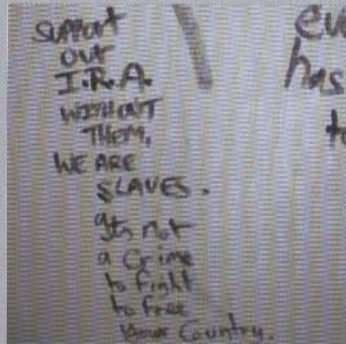 SUPPORT
OUR
I.R.A.
WITHOUT
THEM,
WE ARE
SLAVES.
Its not
a Crime
to fight
to free
your Country.
eve
has
to